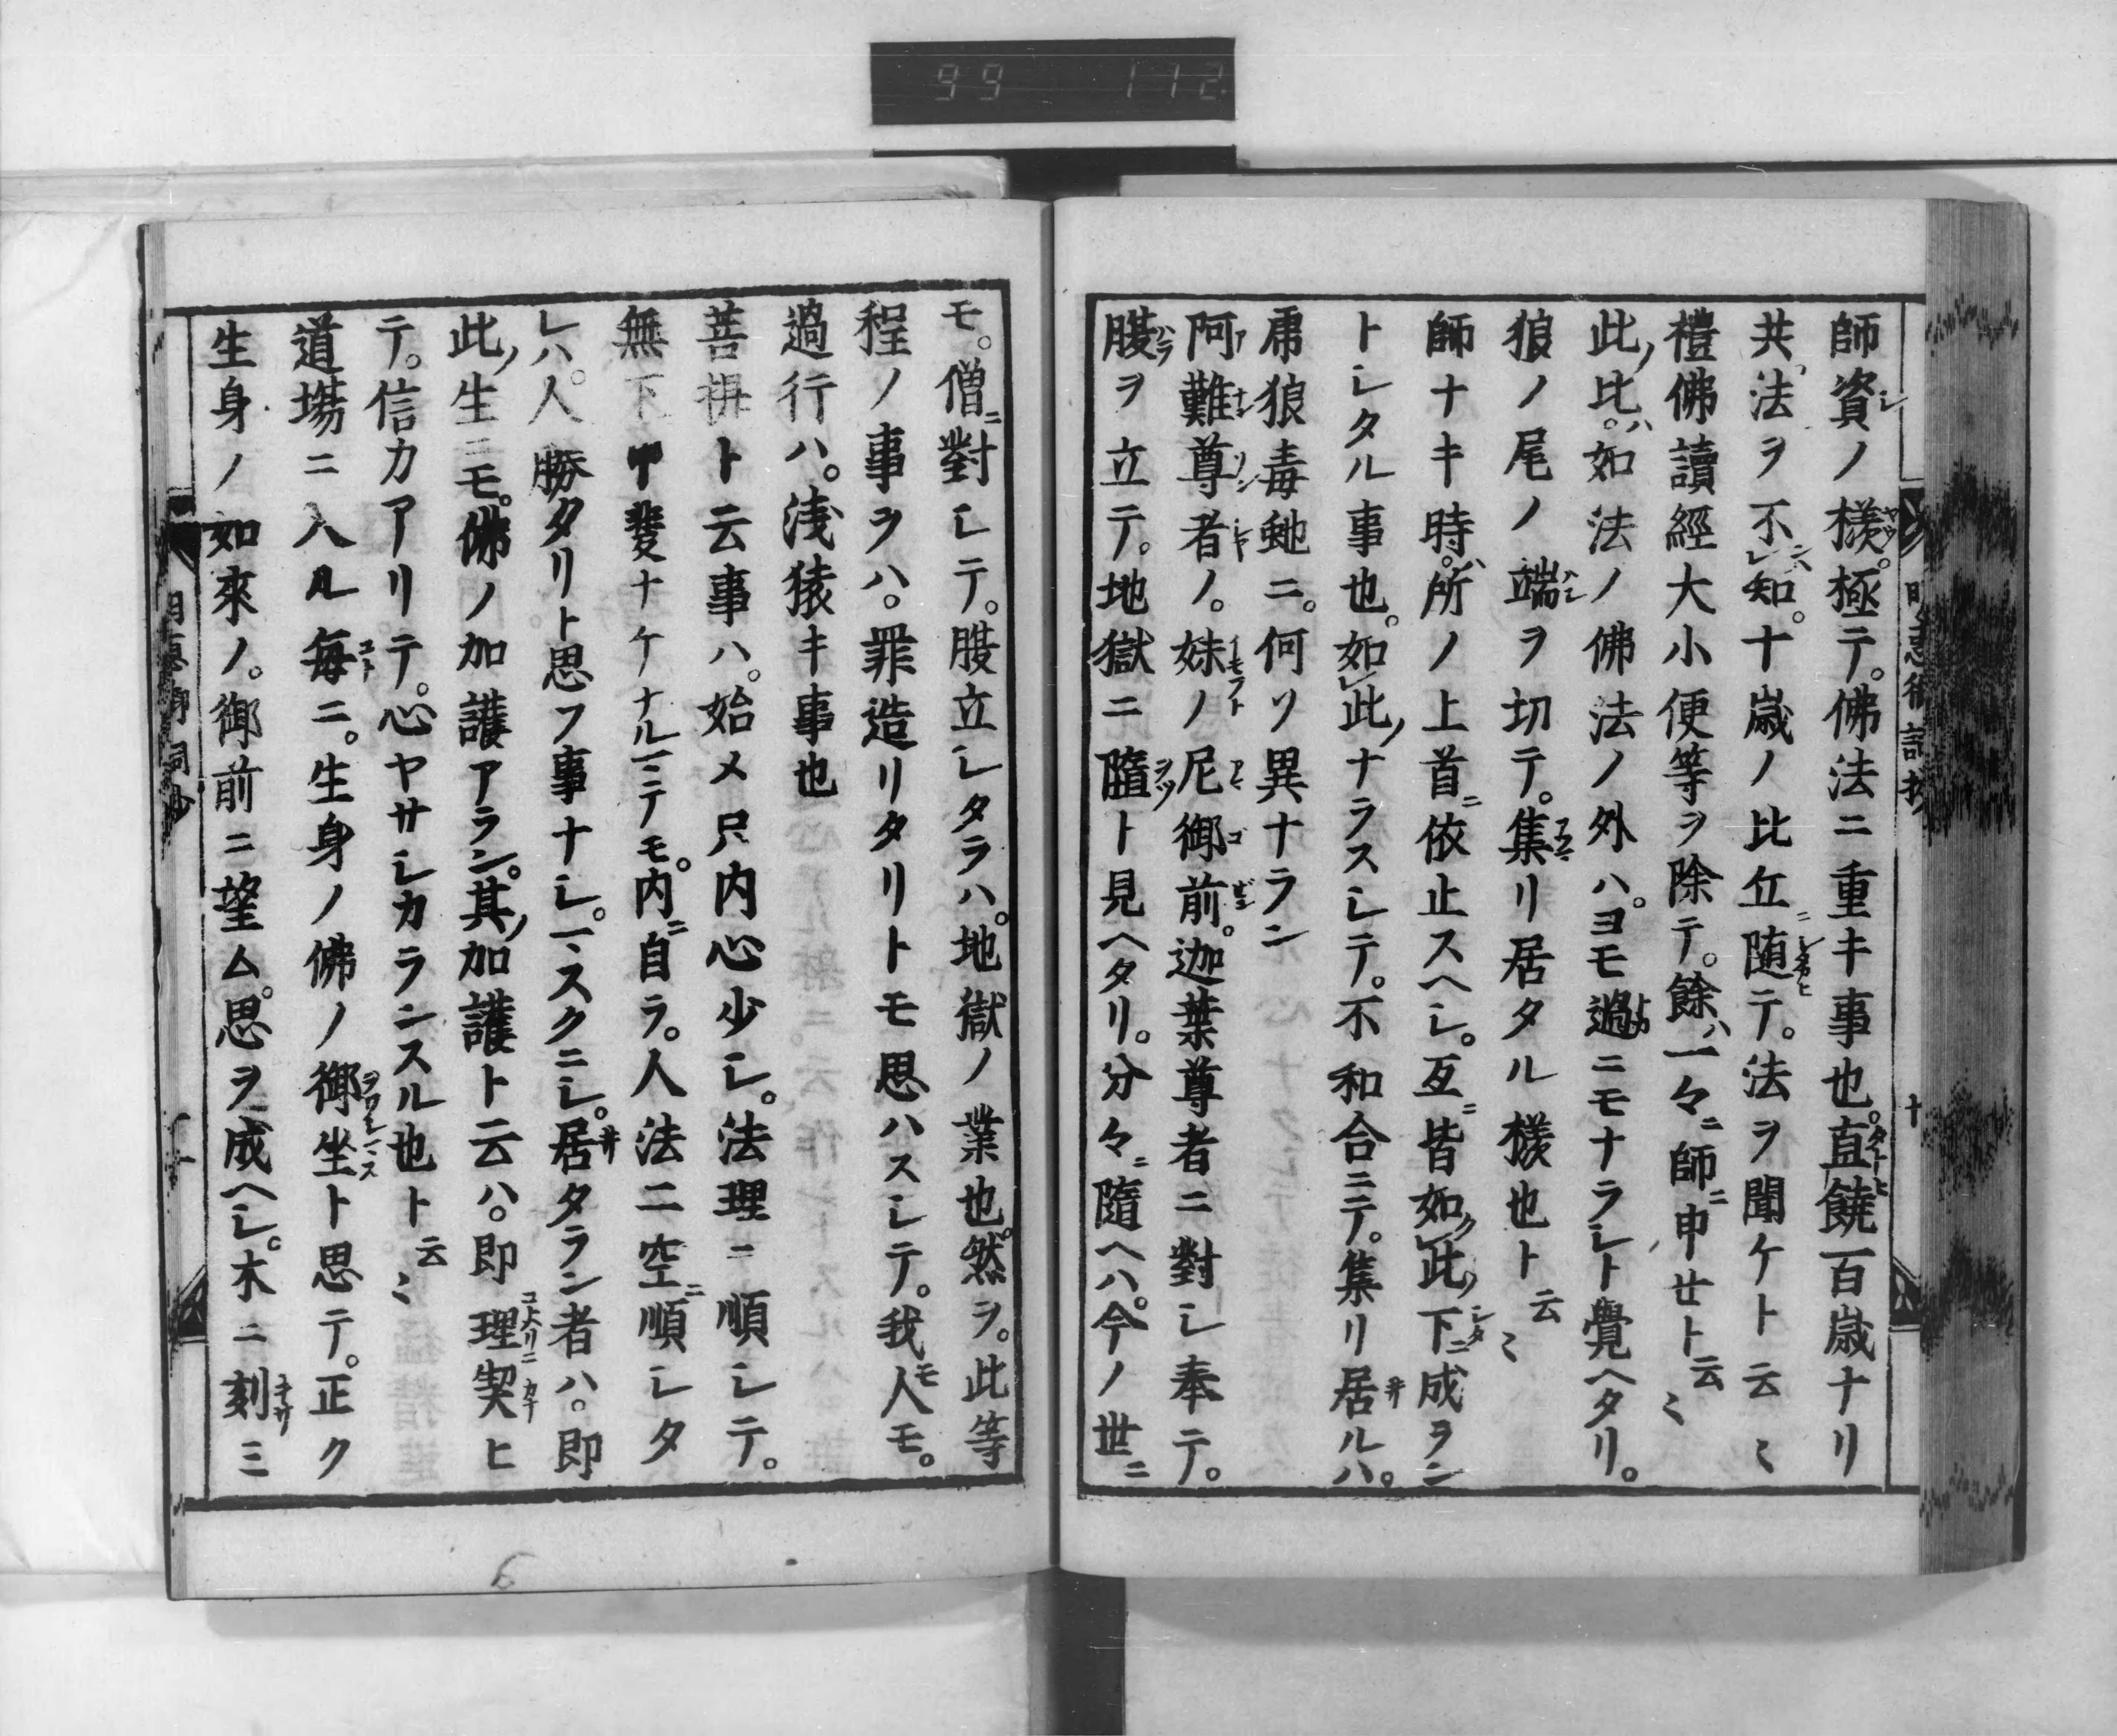 99 112
師資ノ様。極テ。佛法ニ重キ事也。直饒百歳ナリ
共、法ヲ不レ知。十歳ノ比丘ニ随テ。法ヲ聞ケト云〻
禮佛讀經大小便等ヲ除テ。餘ハ一々ニ師ニ申せト云〻
此ノ比。ハ如法ノ佛法ノ外ハ。ヨモ過ニモナラレト覺ヘタリ。
狼ノ尾ノ端ヲ切テ。集リ居タル様也ト云〻
師ナキ時。ハ所ノ上首ニ依止スヘし。互ニ皆如レク此ノ下ニ成ラン
トしタル事也。如レ此ノナラスしテ。不和合ニテ。集リ居ルハ。
虎狼毒虵ニ。何ソ異ナラン
阿難尊者ノ。妹ノ尼御前。迦葉尊者ニ對し奉テ。
腹ヲ立テ。地獄ニ隨ト見ヘタリ。分々ニ隨ヘハ。今ノ世ニ
モ。僧ニ對しテ。腹立しタラハ。地獄ノ業也。然ヲ。此等
程ノ事ヲハ。罪造リタリトモ思ハスしテ。我人モ。
過行ハ。淺猿キ事也
菩提ト云事ハ。始メ只内心少し。法理ニ順しテ。
無下ニ甲斐ナケナル一ニテモ。内ニ自ラ。人法二空ニ順しタ
レハ。人勝タリト思フ事ナし。一、スクニし。居タラン者ハ。即
此ノ生ニモ。佛ノ加護アラン。其ノ加護ト云ハ。即理契ヒ
テ。信力アリテ。心ヤサしカランスル也ト云〻
道場ニ入ル每ニ。生身ノ佛ノ御坐ト思テ。正ク
生身ノ如來ノ。御前ニ望ム。思ヲ成ヘし。木ニ刻ミ
十
十一